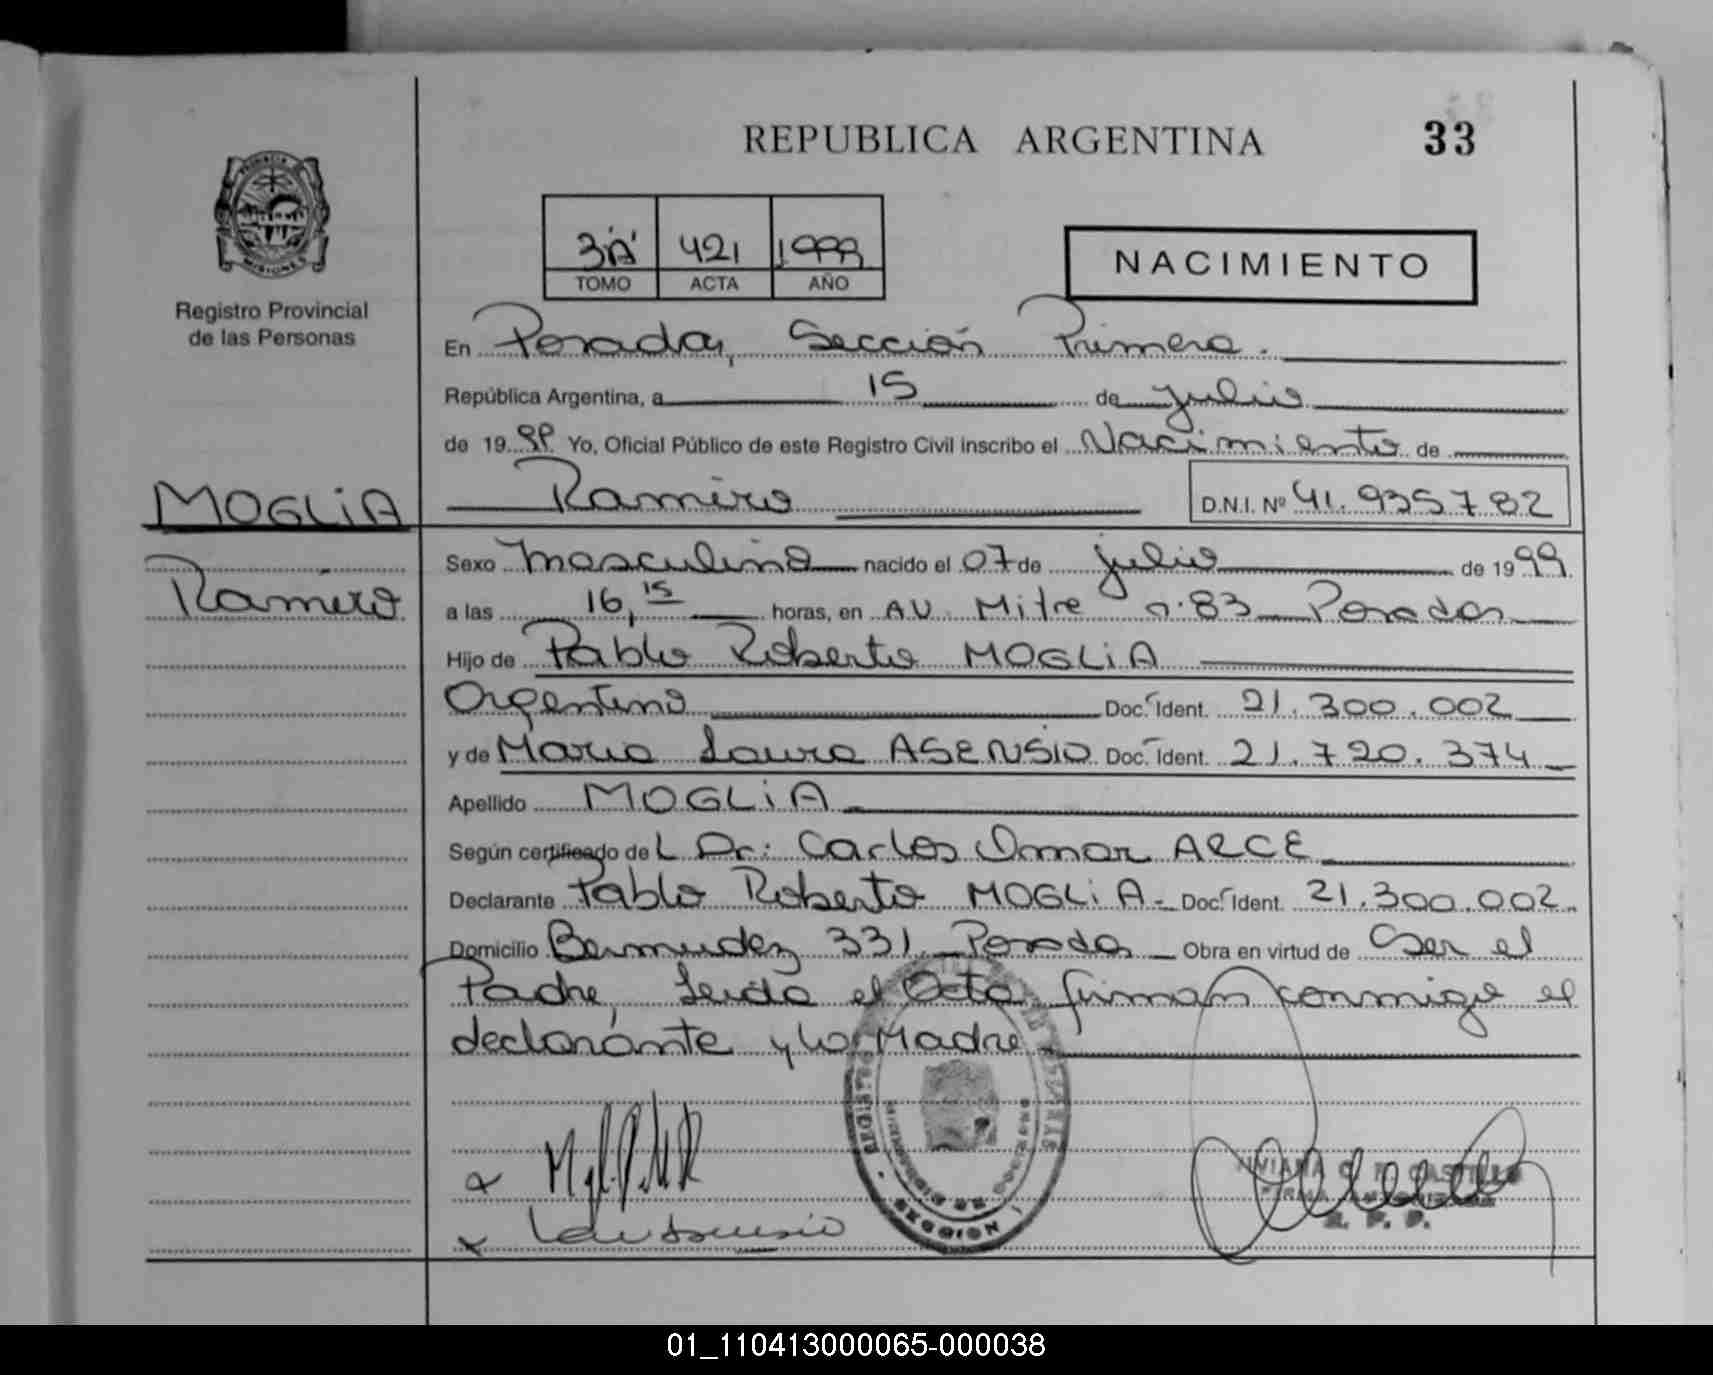 REPUBLICA ARGENTINA
33
3"A" 421 1999
TOMO ACTA AÑO
NACIMIENTO
MISIONES
Registro Provincial
de las Personas
En Posadas, Sección Primera.
República Argentina, a 15 de julio
de 19 99 Yo, Oficial Público de este Registro Civil inscribo el Nacimiento de
MOGLiA
Ramiro D.N.I. Nº 41.935782
Ramiro
Sexo masculino nacido el 07 de julio de 19 99
a las 16,15 horas, en AV. Mitre n.83 Posadas
Hijo de Pablo Roberto MOGLiA
Argentino Doc. Ident. 21.300.002
y de Maria Laura ASENSiO Doc. Ident. 21.720.374
Apellido MOGLiA
Según certificado del Dr: Carlos Omar ARCE
Declarante Pablo Roberto MOGLiA - Doc. Ident. 21.300.002
Domicilio Bermudez 331 Posadas Obra en virtud de Ser el
Padre, Leida el Acta firman conmigo el
declarante y la Madre
VIVIANA CASTILLO
FIRMA
R. P. P.
SECCION 1
01_110413000065-000038